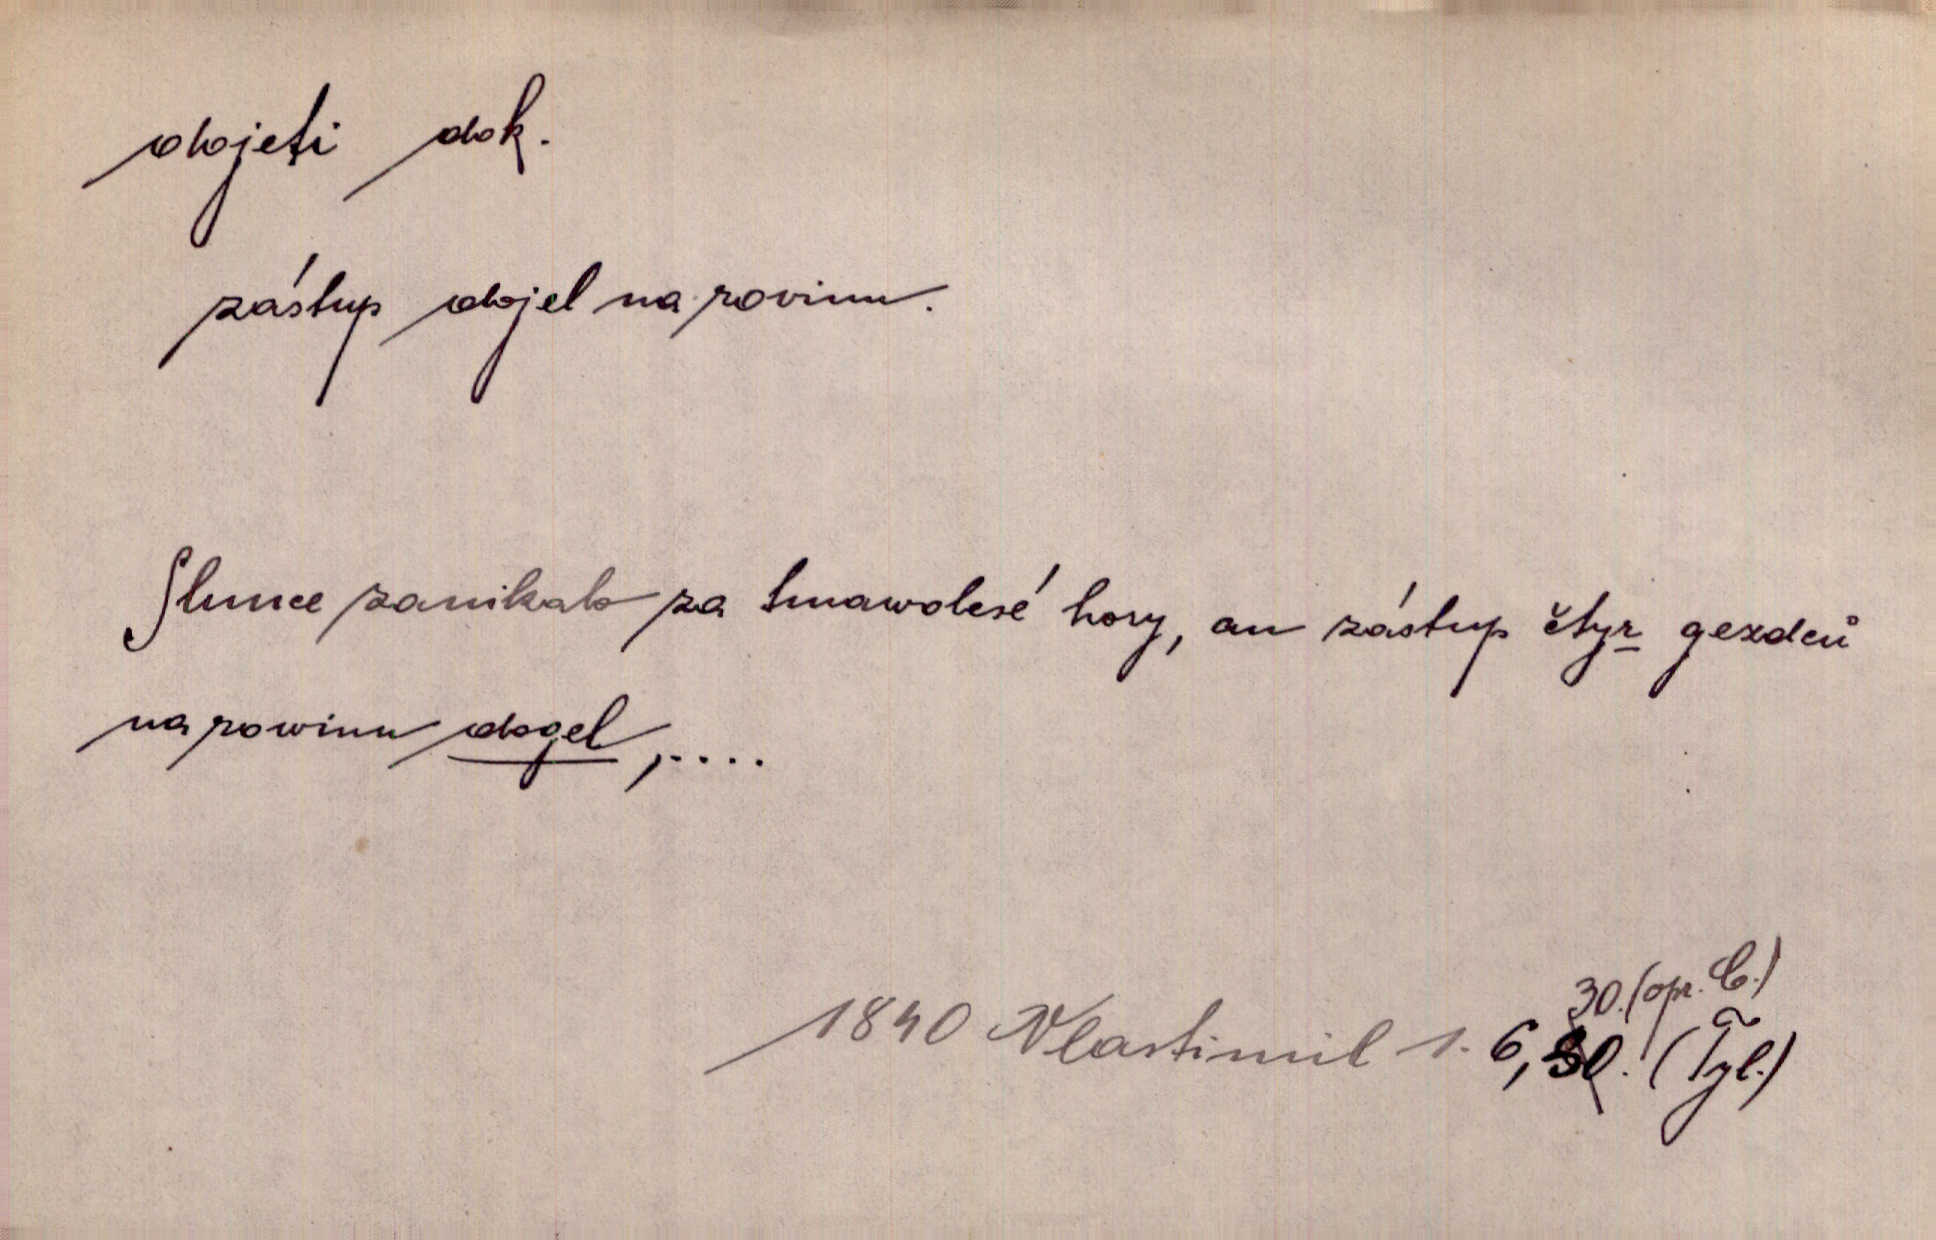 dojeti dok.
zástup dojel na rovinu.
Slunce zanikalo za tmawolesé hory, an zástup čtyr gezdců
na rowinu dogel,....
30. (opr. C.)
1840 Vlastimil 1. 6, 30. (Tyl.)